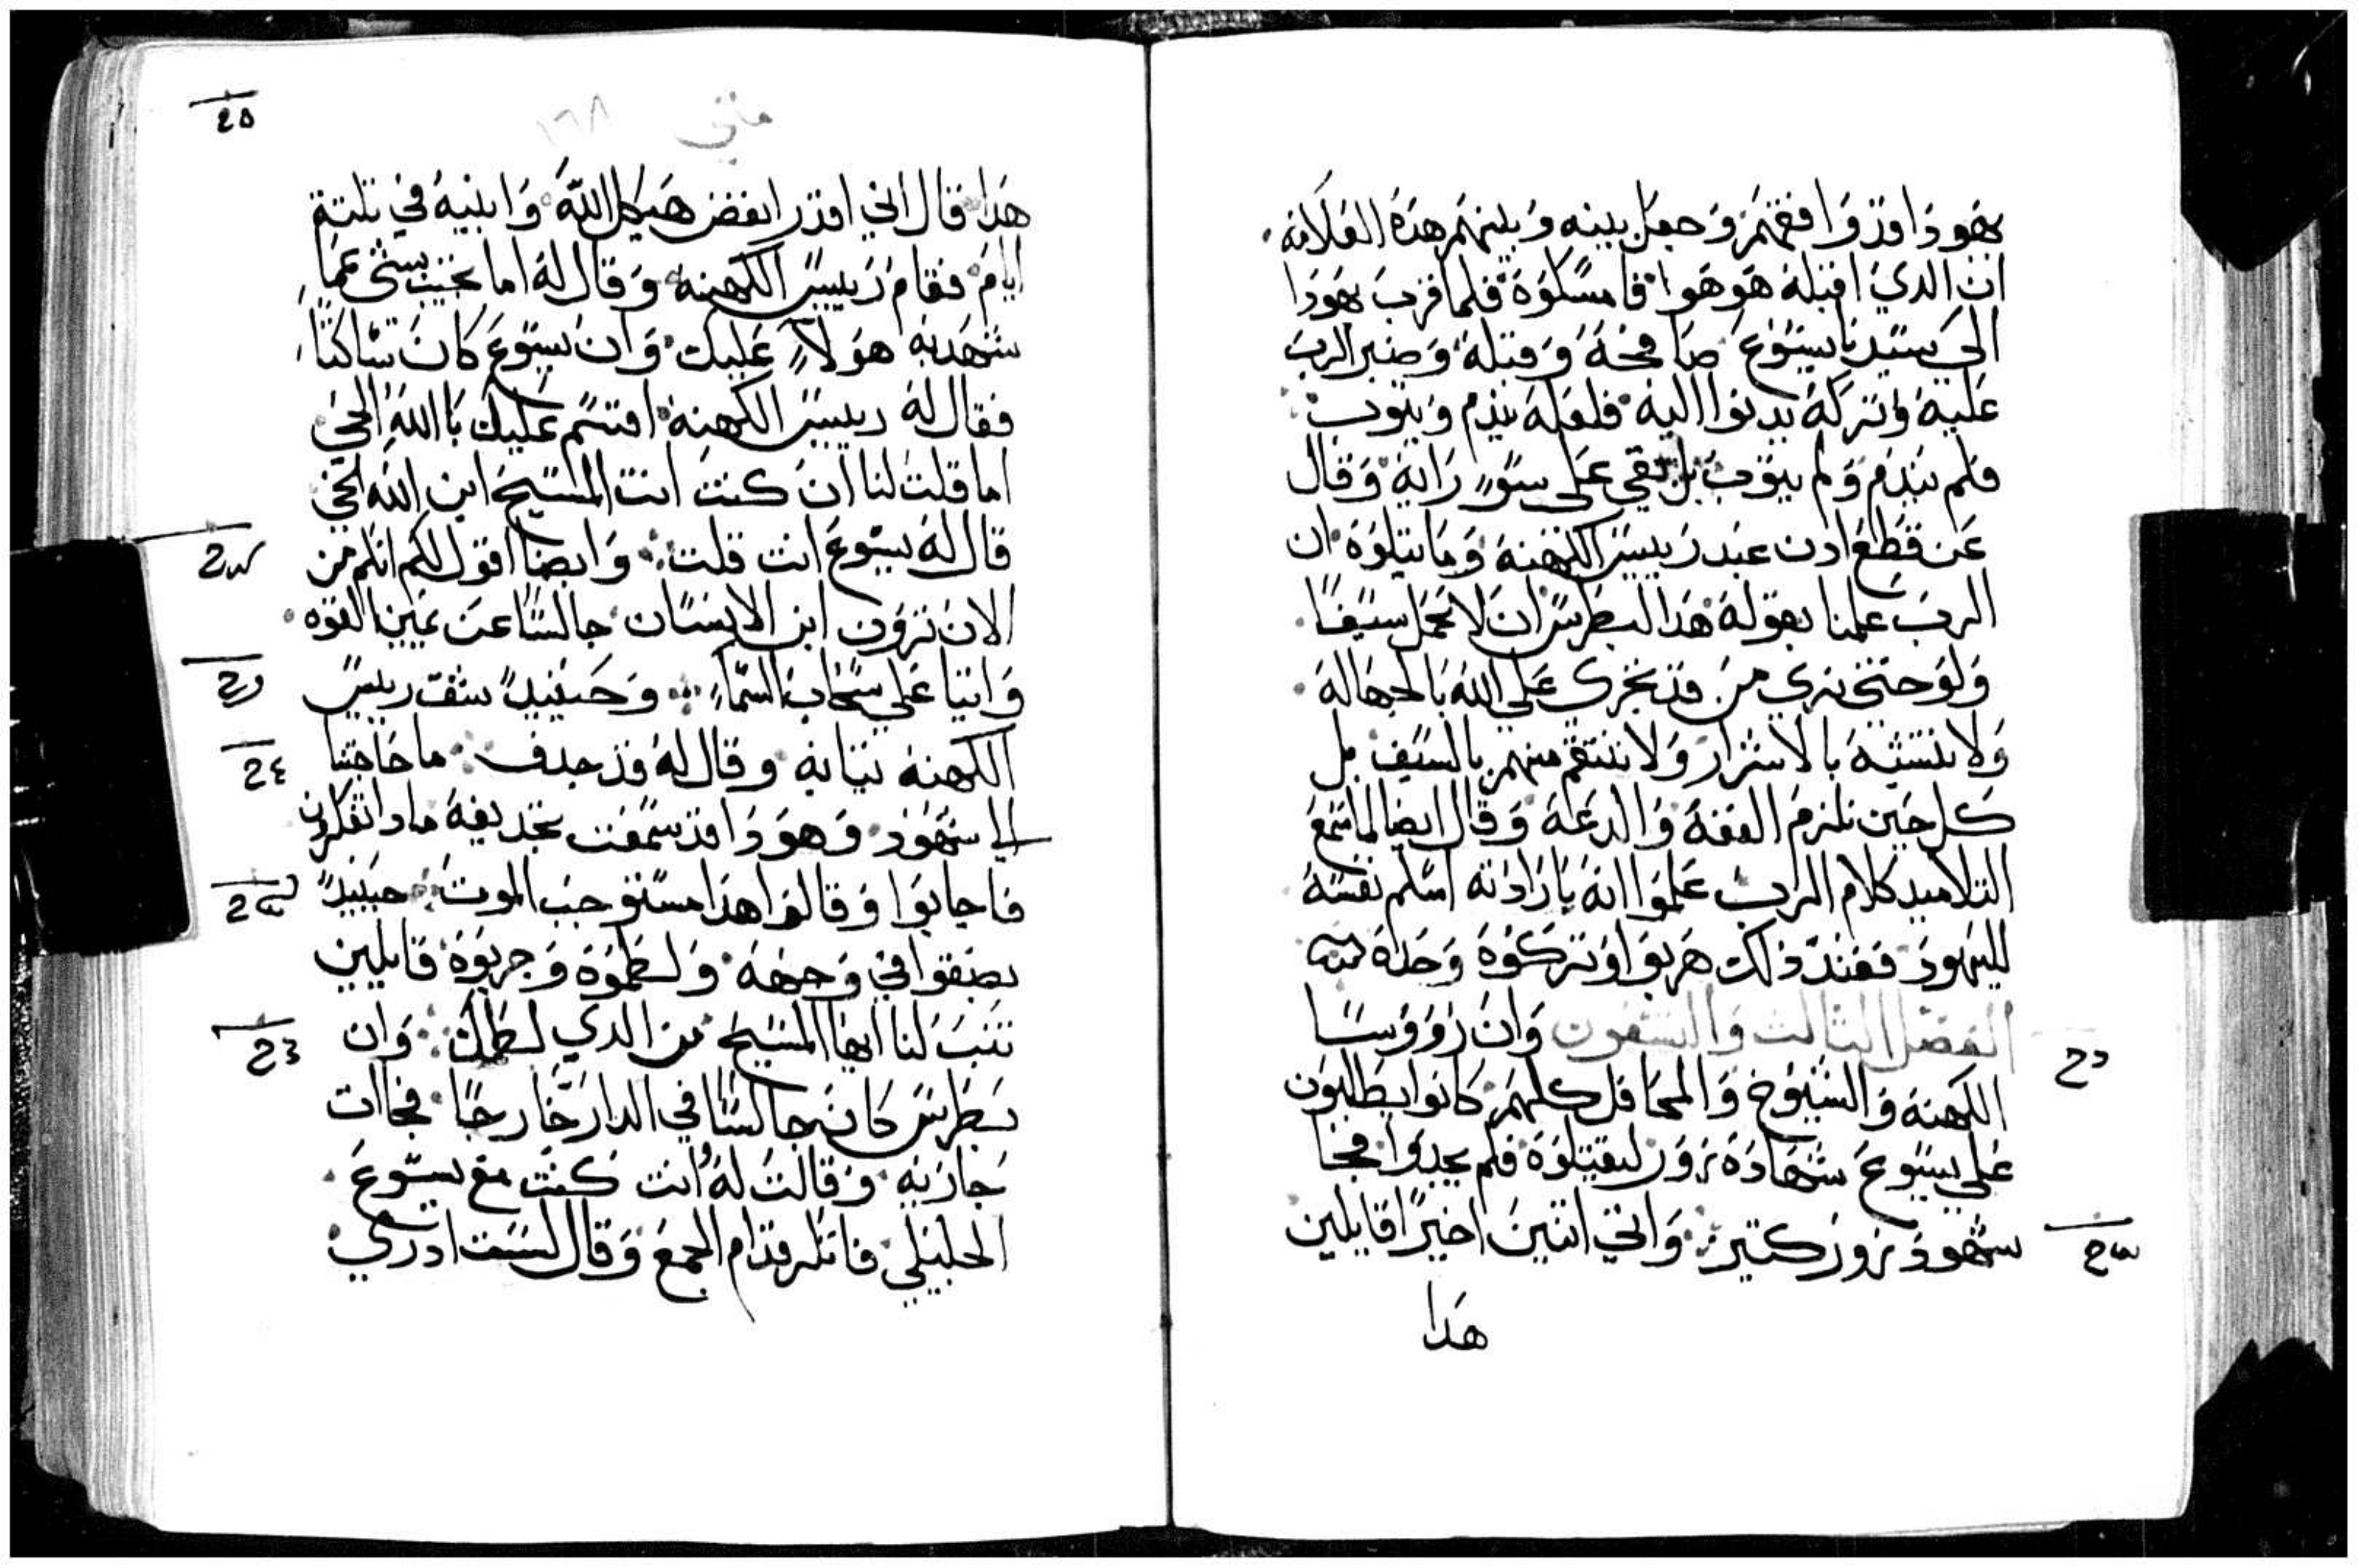 يهودا وقد وافقهم وجعل بينه وبينهم هده العلامه
ان الدي اقبله هو هوا فامسكوه فلما قرب يهودا
الي سيدنا يسوع صافحه وقبله وصبر الرب
عليه وتركه يدنوا اليه فلعله يندم ويتوب
فلم يندم ولم يتوب بل بقي علي سوء رايه وقال
عن قطع ادن عبد رييس الكهنه وما يتلوه ان
الرب علمنا بقوله هدا لبطرس ان لا نحمل سيفا
ولو حتي نري من قد تجري علي الله بالجهاله
ولا نتشبه بالاشرار ولا ننتقم منهم بالسيف بل
كل حين نلزم العفه والدعه وقال ايضا لما سمع
التلاميد كلام الرب علموا انه بارادته اسلم نفسه
لليهود فعند ذلك هربوا وتركوه وحده
الفصل التالت والتسعون وان رووسا
الكهنه والشيوخ والمحافل كلهم كانوا يطلبون
علي يسوع شهاده زور ليقتلوه فلم يجدوا فجا
شهود زور كتير واتي اتنين اخيرا قايلين
هدا
متي ١٦٨
هدا قال اني اقدر انقض هيكل الله وابنيه في تلتة
ايام فقام رييس الكهنه وقال له اما تجيب بشي عما
شهد به هولاء عليك وان يسوع كان ساكتا
فقال له رييس الكهنه اقسم عليك بالله الحي
اما قلت لنا ان كنت انت المسيح ابن الله الحي
قال له يسوع انت قلت وايضا اقول لكم انكم من
الان ترون ابن الانسان جالسا عن يمين القوه
واتيا علي سحاب السماء وحينيد شق رييس
الكهنه تيابه وقال له قد جدف ما حاجتنا
الي شهود وهودا قد سمعت تجديفه مادا تفكرون
فاجابوا وقالوا هدا مستوجب الموت حينيد
بصقوا في وجهه ولطموه وضربوه قايلين
تنب لنا ايها المسيح من الدي لطمك وان
بطرس كان جالسا في الدار خارجا فجاات
جاريه وقالت له انت كنت مع يسوع
الجليلي فانكر قدام الجمع وقال لست ادري